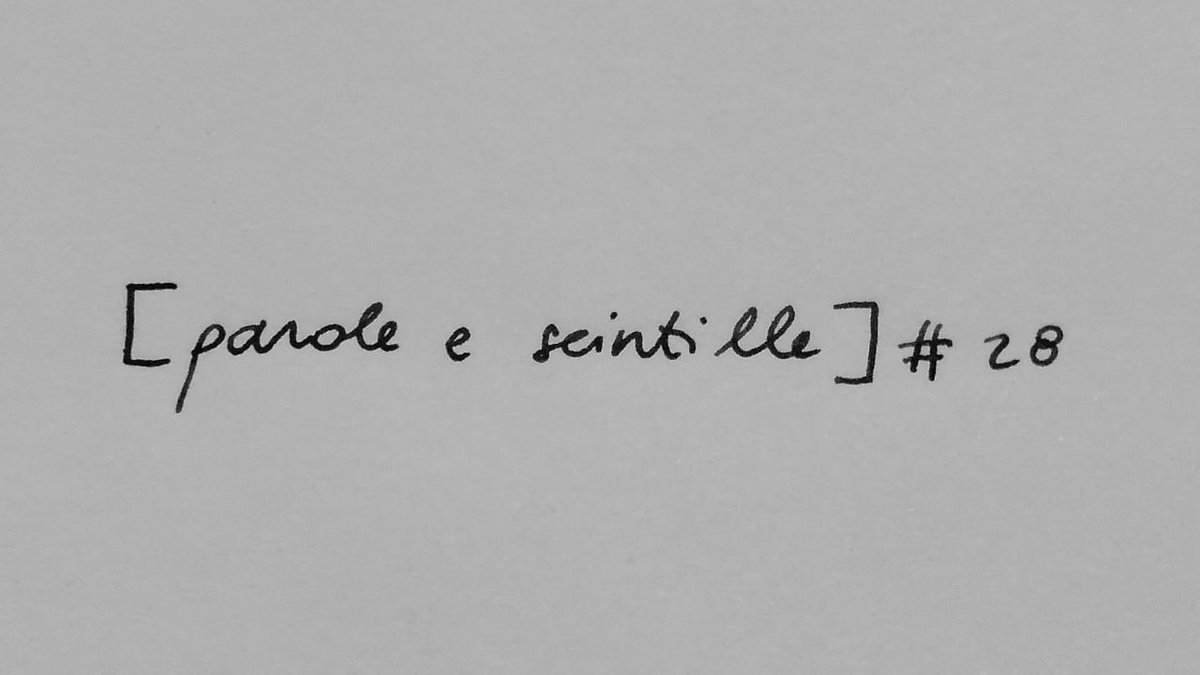 [parole e scintille] # 28